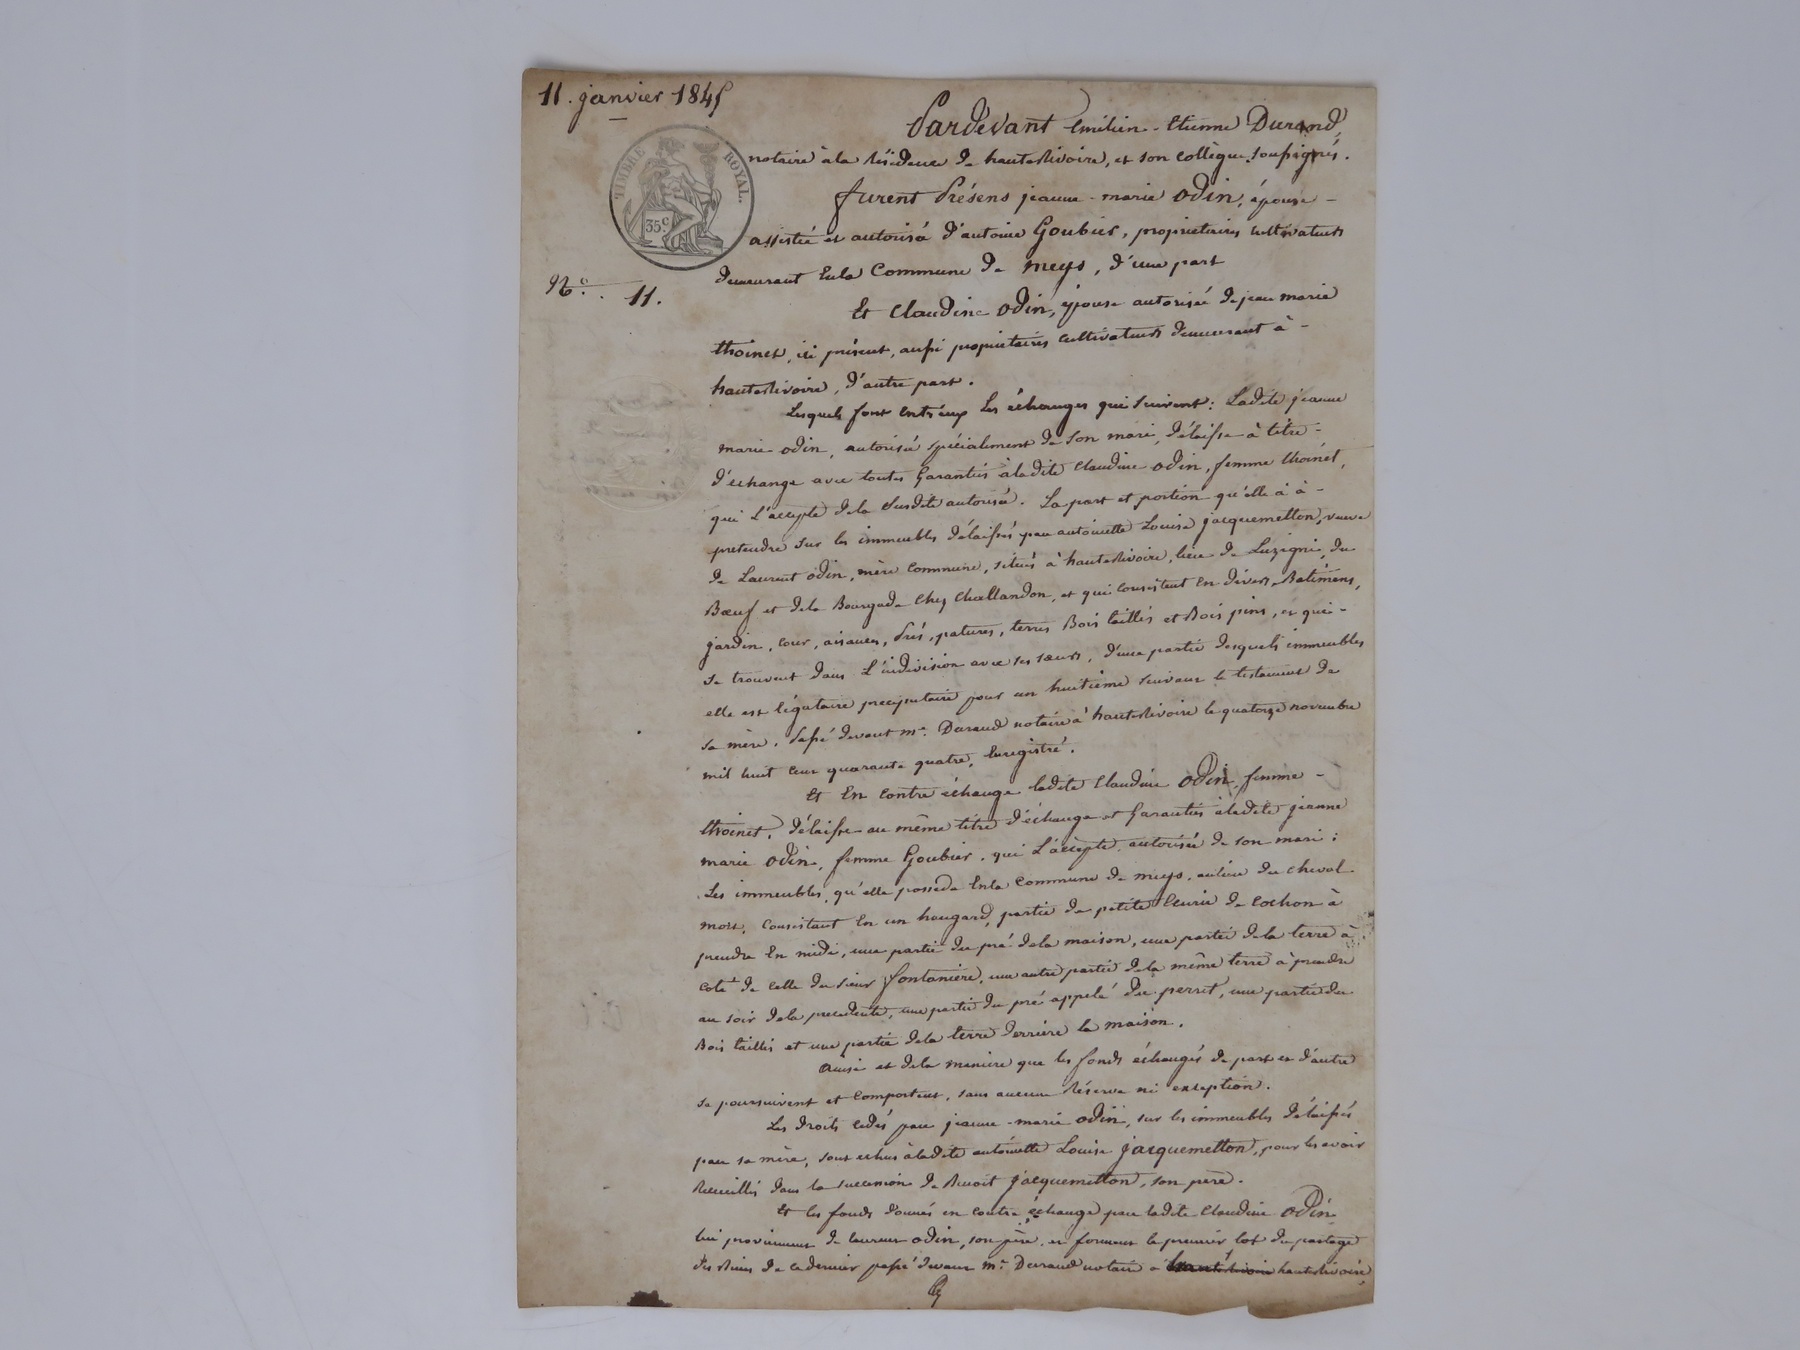 11. janvier 1845
Pardevant Emilien - Etienne Durand,
TIMBRE ROYAL.
35c
notaire à la Résidence de hauterivoire, et son collègue soussignés.
furent Présens jeanne - marie Odin, épouse -
assistée et autorisée d'antoine Goubier, propriétaires cultivateurs
demeurant En la Commune de meys, d'une part
No. 11.
Et Claudine Odin, épouse autorisée de jean marie
thoinet, ici présent, aussi propriétaires cultivateurs demeurant à -
hauterivoire, d'autre part.
Lesquels font entr'eux les échanges qui suivent : Ladite jeanne
marie odin, autorisée spécialement de son mari, délaisse à titre -
d'échange avec toutes Garanties à ladite Claudine odin, femme thoinet,
qui l'accepte de la susdite autorisée. La part et portion qu'elle à à -
pretendre sur les immeubles délaissés par antoinette Louise jacquemetton, veuve
de Laurent odin, mère commune, situés à hauterivoire, lieu de Luzigni, du
Bœuf et de la Bourgade Chez Challandon, et qui consistent En divers Batimens,
jardin, cour, aisances, Prés, patures, terres Bois taillis et Bois pins, et qui -
se trouvent dans L'indivision avec ses sœurs, d'une partie desquels immeubles
elle est légataire preciputaire pour un huitième suivant le testament de
sa mère, Passé devant me. Durand notaire à hauterivoire le quatorze novembre
mil huit cent quarante quatre, Enregistré.
Et En contre échange ladite Claudine Odin, femme -
thoinet, délaisse au même titre d'échange et Garanties à ladite jeanne
marie Odin, femme Goubier, qui L'accepte autorisée de son mari :
Les immeubles qu'elle possède En la Commune de meys, au lieu du cheval
mort, Consistant En un hangard, partie de petite Ecurie de Cochon à
prendre En midi, une partie du pré de la maison, une partie de la terre à
coté de celle du sieur fontanière, une autre partie de la même terre à prendre
au soir de la precedente, une partie du pré appelé du perret, une partie du
Bois taillis et une partie de la terre derrière la maison.
Ainsi et de la manière que les fonds échangés de part et d'autre
se poursuivent et comportent, sans aucune Réserve ni exception.
Les droits cédés par jeanne - marie Odin, sur les immeubles délaissés
par sa mère, sont echus à ladite antoinette Louise jacquemetton, pour les avoir
Recueillis dans la succession de Benoit jacquemetton, son père.
Et les fonds donnés en contre échange par ladite Claudine Odin
lui proviennent de laurent odin, son père, et forment le premier lot du partage
des Biens de ce dernier passé devant me. Durand notaire à hauterivoire